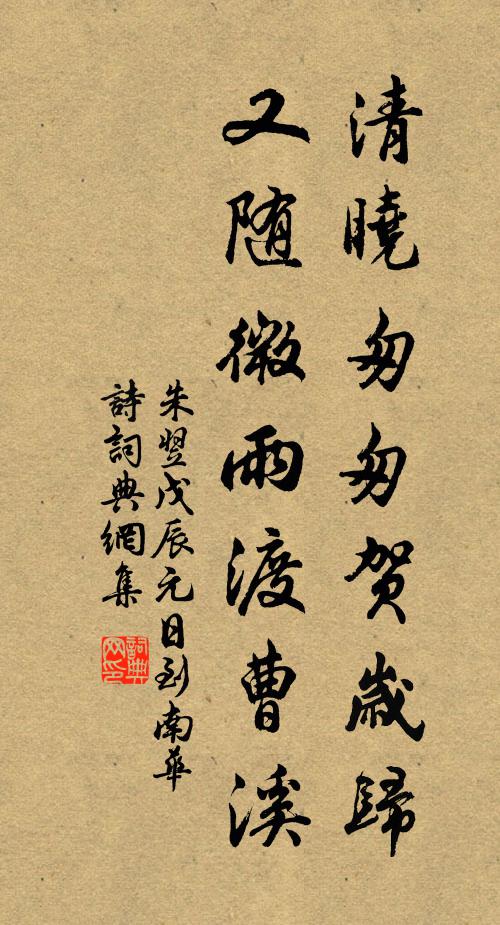 清曉匆匆賀歲歸
又随微雨渡曹溪
朱翌戊辰元日到南華
詩詞典網集
詞典網印